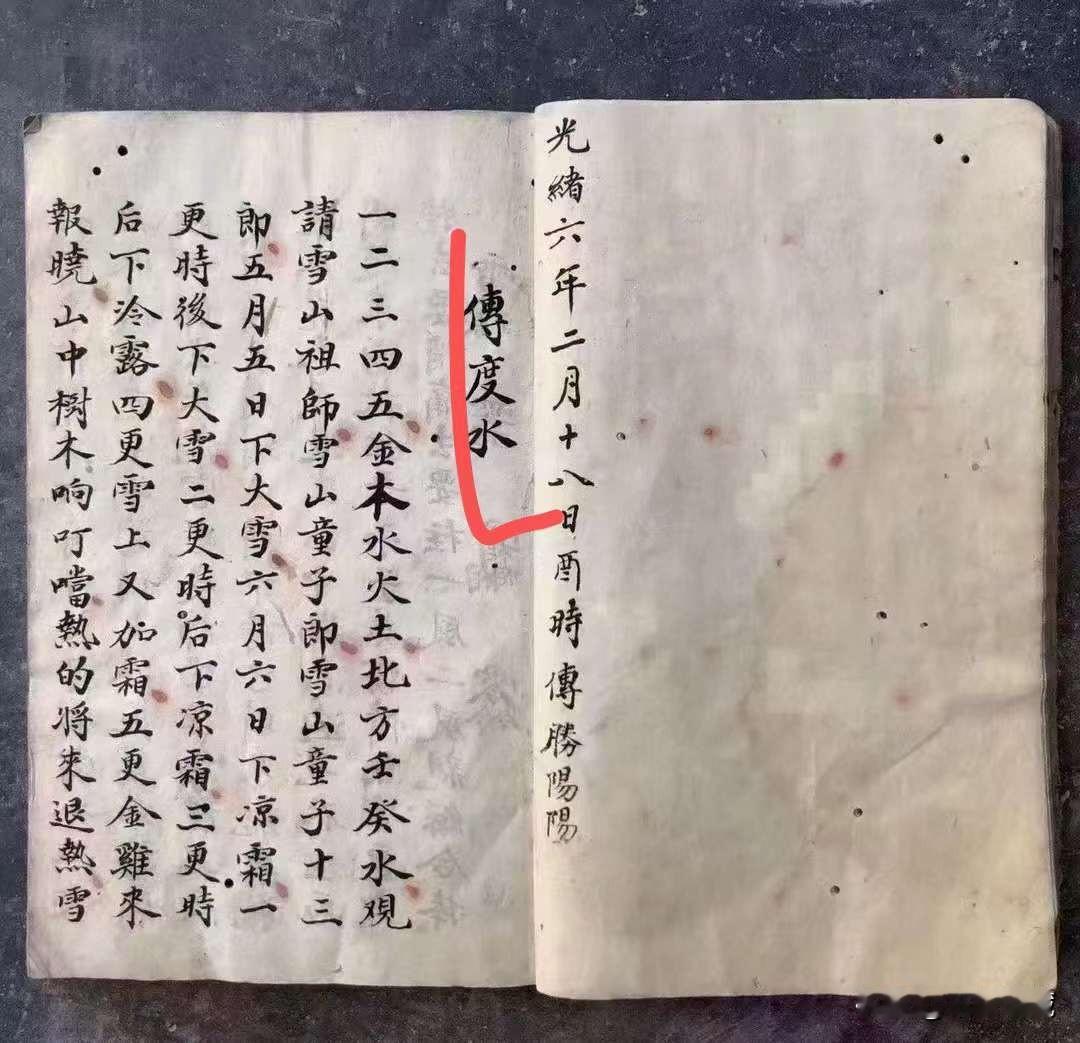 光緒六年二月十八日酉時傳勝陽陽
傳度水
一二三四五金本水火土北方壬癸水觀
請雪山祖師雪山童子郎雪山童子十三
郎五月五日下大雪六月六日下凉霜一
更時後下大雪二更時后下凉霜三更時
后下冷露四更雪上又加霜五更金雞來
報曉山中樹木响叮噹熱的將來退熱雪